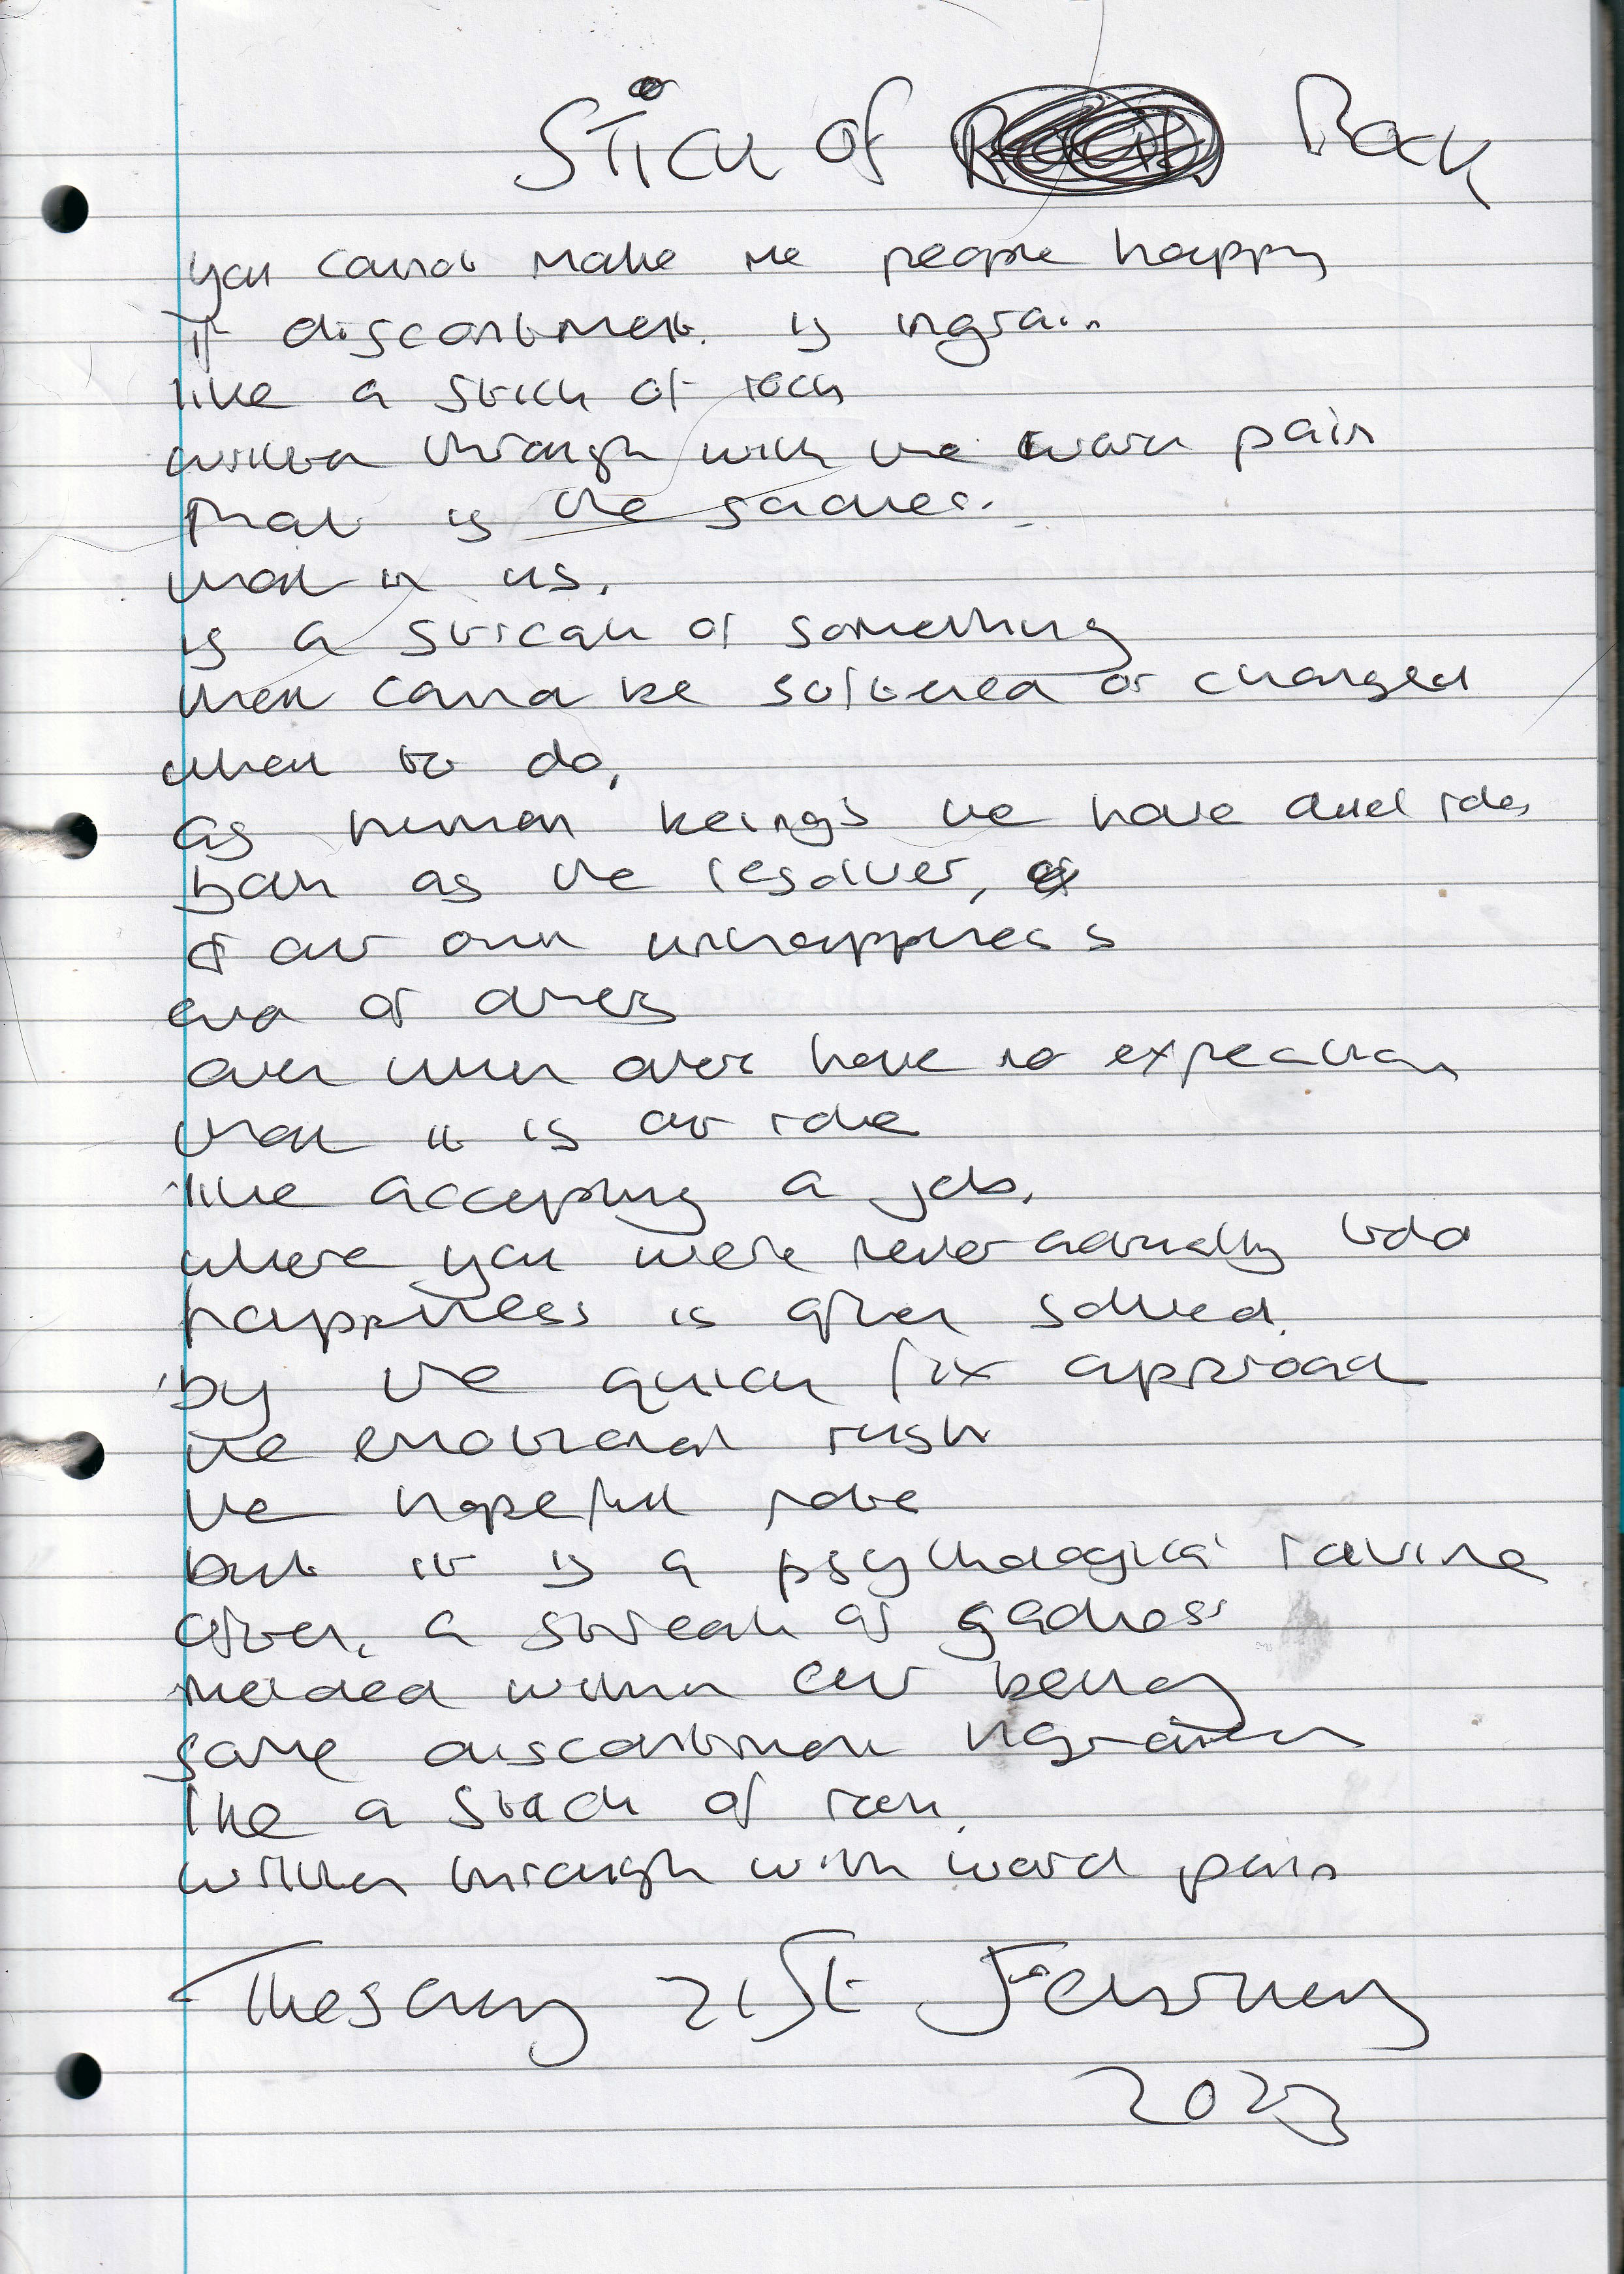 Stick of Rock
you cannot make the people happy
if discontment is ingrain
like a stick of rock
written through with the word pain
that is the sadness
that in us,
is a streak of something
that cannot be softened or changed
what to do,
as human beings we have duel roles
both as the resolver,
of our own unhappiness
and of others
often when others have no expectation
that it is our role
like accepting a job,
where you were never actually told
happiness is often solved,
by the quick fix approach
the emotional rush
the hopefull
but it is a psychological ravine
often, a streak of sadness
melded within our being
some discontment ingrain
like a stick of rock,
written through with word pain
Tuesday 21st February
2023